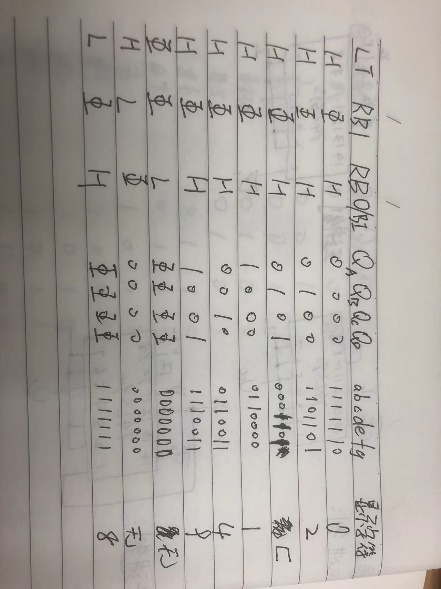 LT RBI RBO/BI QA QB QC QD abcdefg 显示字符
H Φ H 0 0 0 0 1111110 0
H Φ H 0 1 0 0 1101101 2
H Φ H 0 1 0 1
H Φ H 1 0 0 0 0110000 1
H Φ H 0 0 1 0 0110011 4
H Φ H 1 0 0 1 1110011 9
Φ Φ L Φ Φ Φ Φ 0000000 无
H L Φ 0 0 0 0 0000000 无
L Φ H Φ Φ Φ Φ 1111111 8